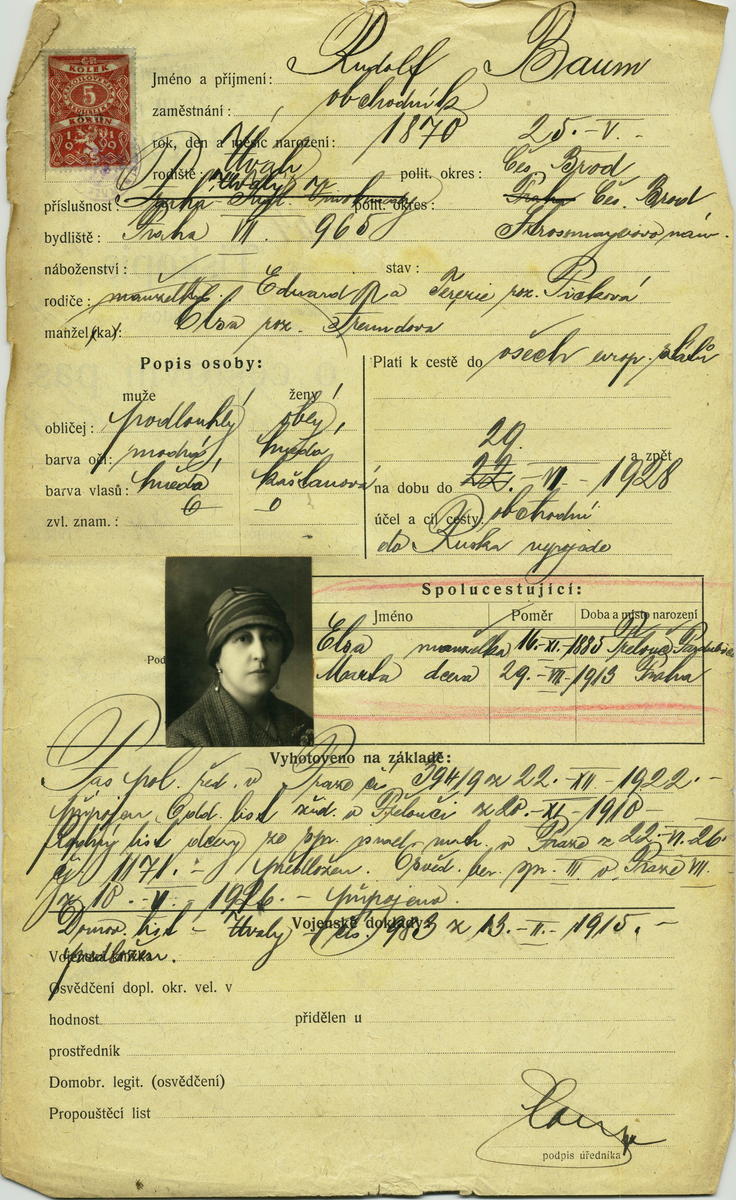 KOLEK
5
KORUN
1919
Jméno a příjmení: Rudolf Baum
zaměstnání: obchodník
rok, den a měsíc narození: 1870 25.-V.-
rodiště: Úvaly polit. okres: Čes. Brod
příslušnost: Úvaly polit. okres: Praha Čes. Brod
bydliště: Praha VII. 965 Strossmayerovo nám.
náboženství: stav:
rodiče: manželky. Eduard a Terezie roz. Picková
manžel(ka): Elsa roz. Freundova
Popis osoby:
Platí k cestě do všech evrop. států
muže ženy
obličej: podlouhlý obly
barva očí: modrá hnědá
29
a zpět
barva vlasů: hnědá kaštanová
na dobu do 22.-VI-1928
zvl. znam.: 0 0
účel a cíl cesty: obchodní
do Ruska nepojede
Spolucestující:
Jméno Poměr Doba a místo narození
Elsa manželka 16.-XI.-1885 Přelouč Pardubice
Marta dcera 29.-VII-1913 Praha
Pod
Vyhotoveno na základě:
Pas pol. řed. v Praze čís. 39419 z 22.-XII-1922.-
připojen. Odd. list žid. v Přelouči z 20.-XI-1910-
Rodný list dcery ze v Praze z 22.-VI.26.
čj 1171.- předložen. Osvěd. ber. spr. III v Praze VII.
z 10.-V.1926.- připojeno.
Vojenské doklady:
Domov. list - Úvaly čís. 983 z 13.-II.-1915.-
předložen.
Osvědčení dopl. okr. vel. v
hodnost přidělen u
prostředník
Domobr. legit. (osvědčení)
Propouštěcí list
podpis úředníka